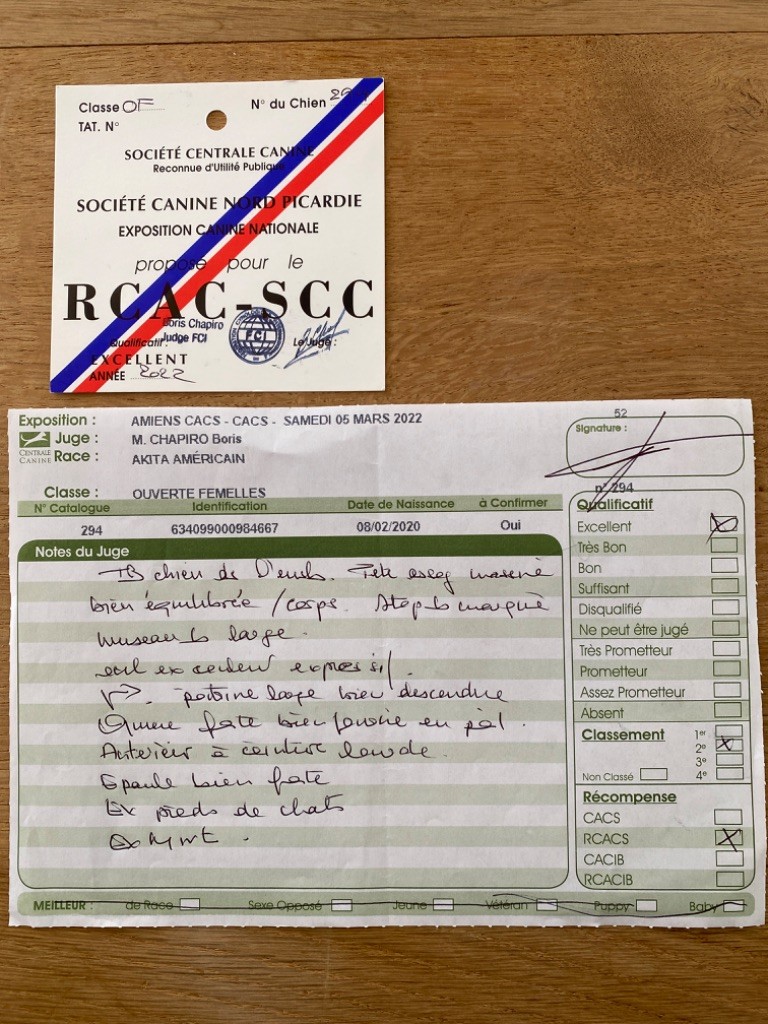 Classe OF N° du Chien
TAT. N°
SOCIÉTÉ CENTRALE CANINE
Reconnue d'Utilité Publique
SOCIÉTÉ CANINE NORD PICARDIE
EXPOSITION CANINE NATIONALE
propose pour le
RCAC-SCC
Boris Chapiro
Judge FCI
FCI
Qualificatif : Le Juge :
EXCELLENT
ANNÉE 2022
Exposition : AMIENS CACS - CACS - SAMEDI 05 MARS 2022
52
Signature :
CENTRALE CANINE
Juge : M. CHAPIRO Boris
Race : AKITA AMÉRICAIN
Classe : OUVERTE FEMELLES
n° 294
N° Catalogue Identification Date de Naissance à Confirmer
294 634099000984667 08/02/2020 Oui
Notes du Juge
TB chien de
bien équilibrée / corps. Stop marqué
museau large.
oeil excellent expressif
poitrine large bien descendue
forte bien fournie en poil.
Antérieur à
Epaule bien forte
Ex pieds de chats
Qualificatif
Excellent
Très Bon
Bon
Suffisant
Disqualifié
Ne peut être jugé
Très Prometteur
Prometteur
Assez Prometteur
Absent
Classement 1er
2e
3e
Non Classé 4e
Récompense
CACS
RCACS
CACIB
RCACIB
MEILLEUR : de Race Sexe Opposé Jeune Vétéran Puppy Baby